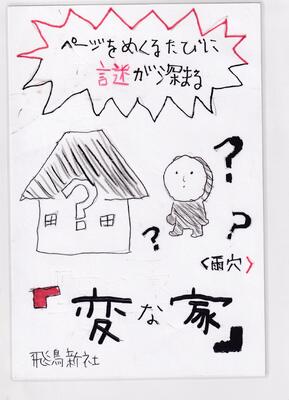 ページをめくるたびに
謎が深まる
?
?
?
?
〈雨穴〉
『変な家』
飛鳥新社